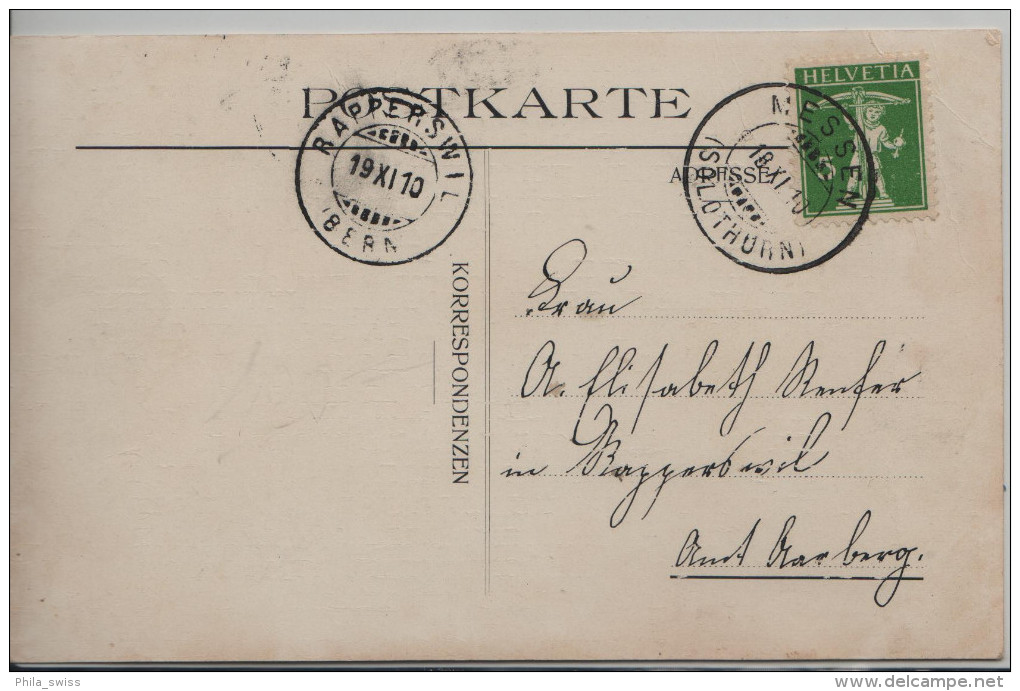 POSTKARTE
HELVETIA
RAPPERSWIL
19 XI 10
(BERN)
MESSEN
18 XI 10
(SOLOTHURN)
ADRESSE
KORRESPONDENZEN
Frau
A. Elisabeth Renfer
in Rapperswil
Amt Aarberg.
Phila_swiss
delcampe.net